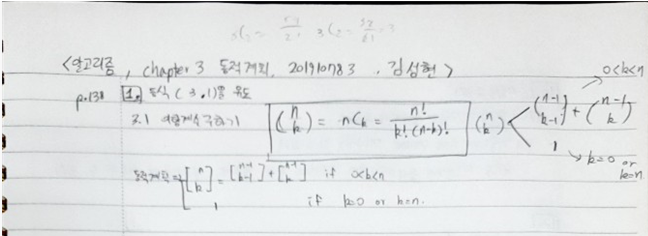 <알고리즘, chapter 3 동적계획, 201910783, 김성현>
p.138 1. 등식 (3.1)을 유도
3.1 이항계수 구하기 (n k) = nCk = n! / k!(n-k)! (n k) < (n-1 k-1) + (n-1 k) → 0<k<n
1 → k=0 or k=n
동적계획 ⇒ [n k] = [n-1 k-1] + [n-1 k] if 0<k<n
1 if k=0 or k=n.